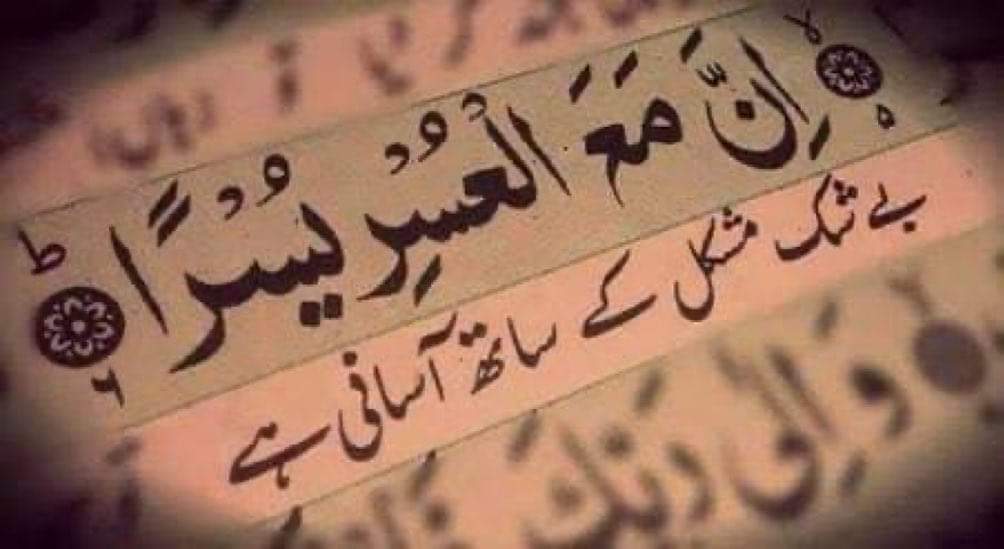 لا ۵ اِنَّ مَعَ الْعُسْرِ يُسْرًا ط ۶
بے شک مشکل کے ساتھ آسانی ہے
وَاِلٰى رَبِّكَ